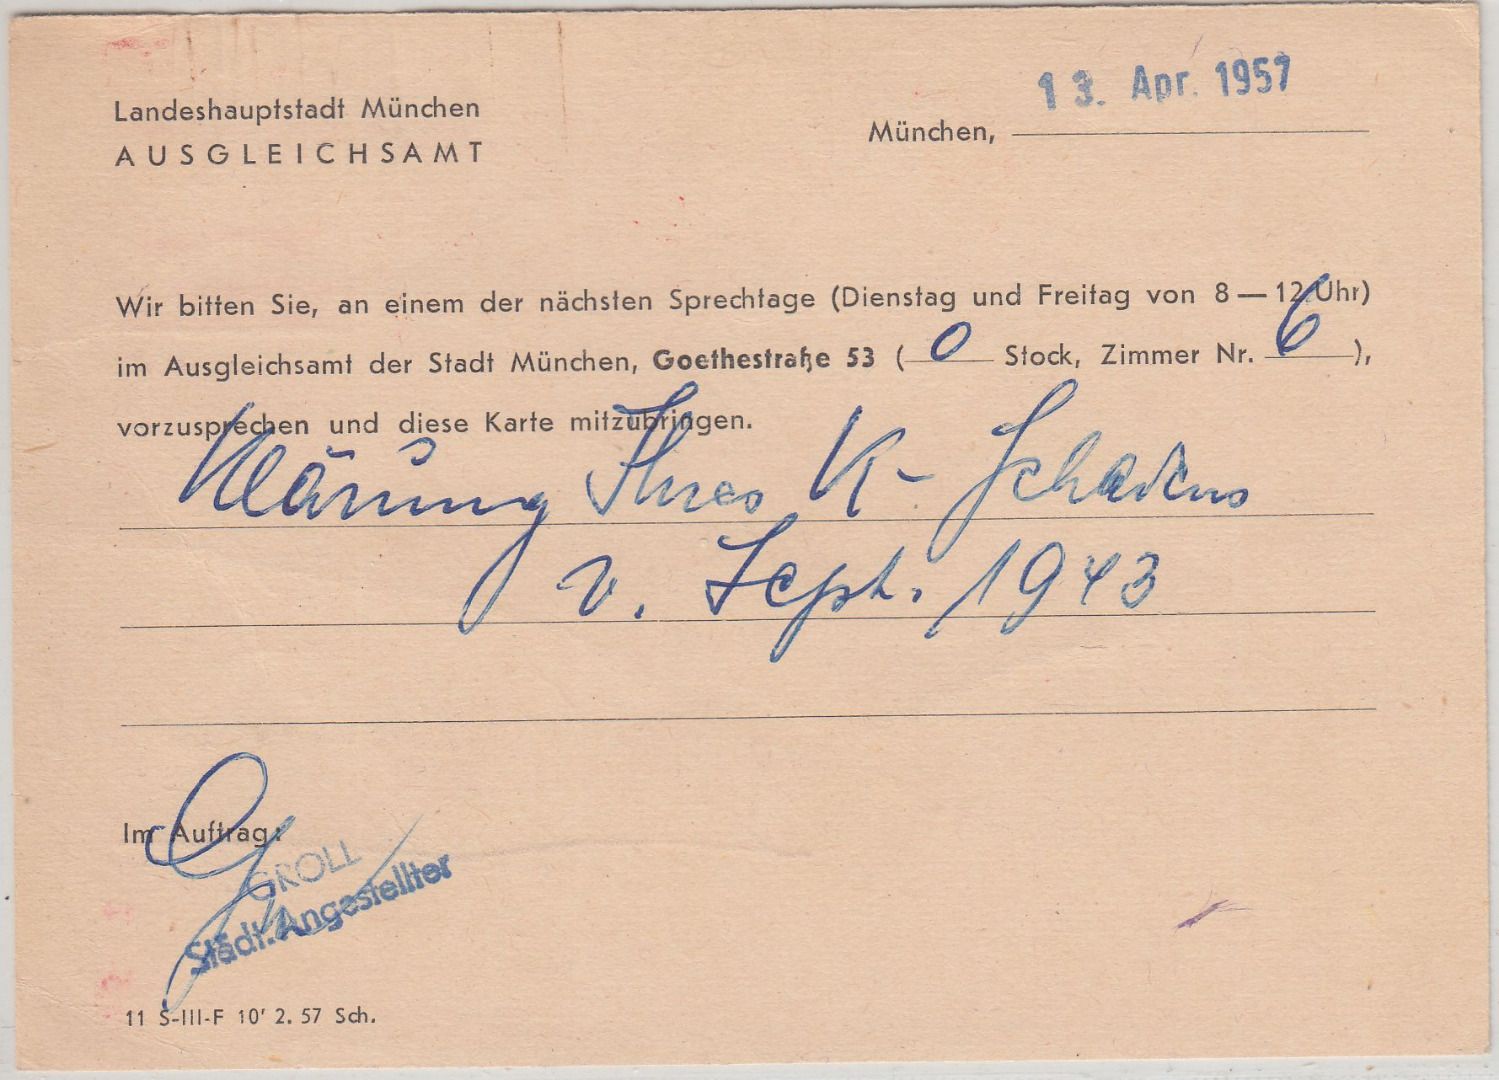 Landeshauptstadt München
AUSGLEICHSAMT
13. Apr. 1957
München,
Wir bitten Sie, an einem der nächsten Sprechtage (Dienstag und Freitag von 8—12 Uhr)
im Ausgleichsamt der Stadt München, Goethestraße 53 (0 Stock, Zimmer Nr. 6),
vorzusprechen und diese Karte mitzubringen.
Klärung Ihres K-Schadens
v. Sept. 1943
Im Auftrag:
GROLL
Städt. Angestellter
11 S-III-F 10' 2. 57 Sch.